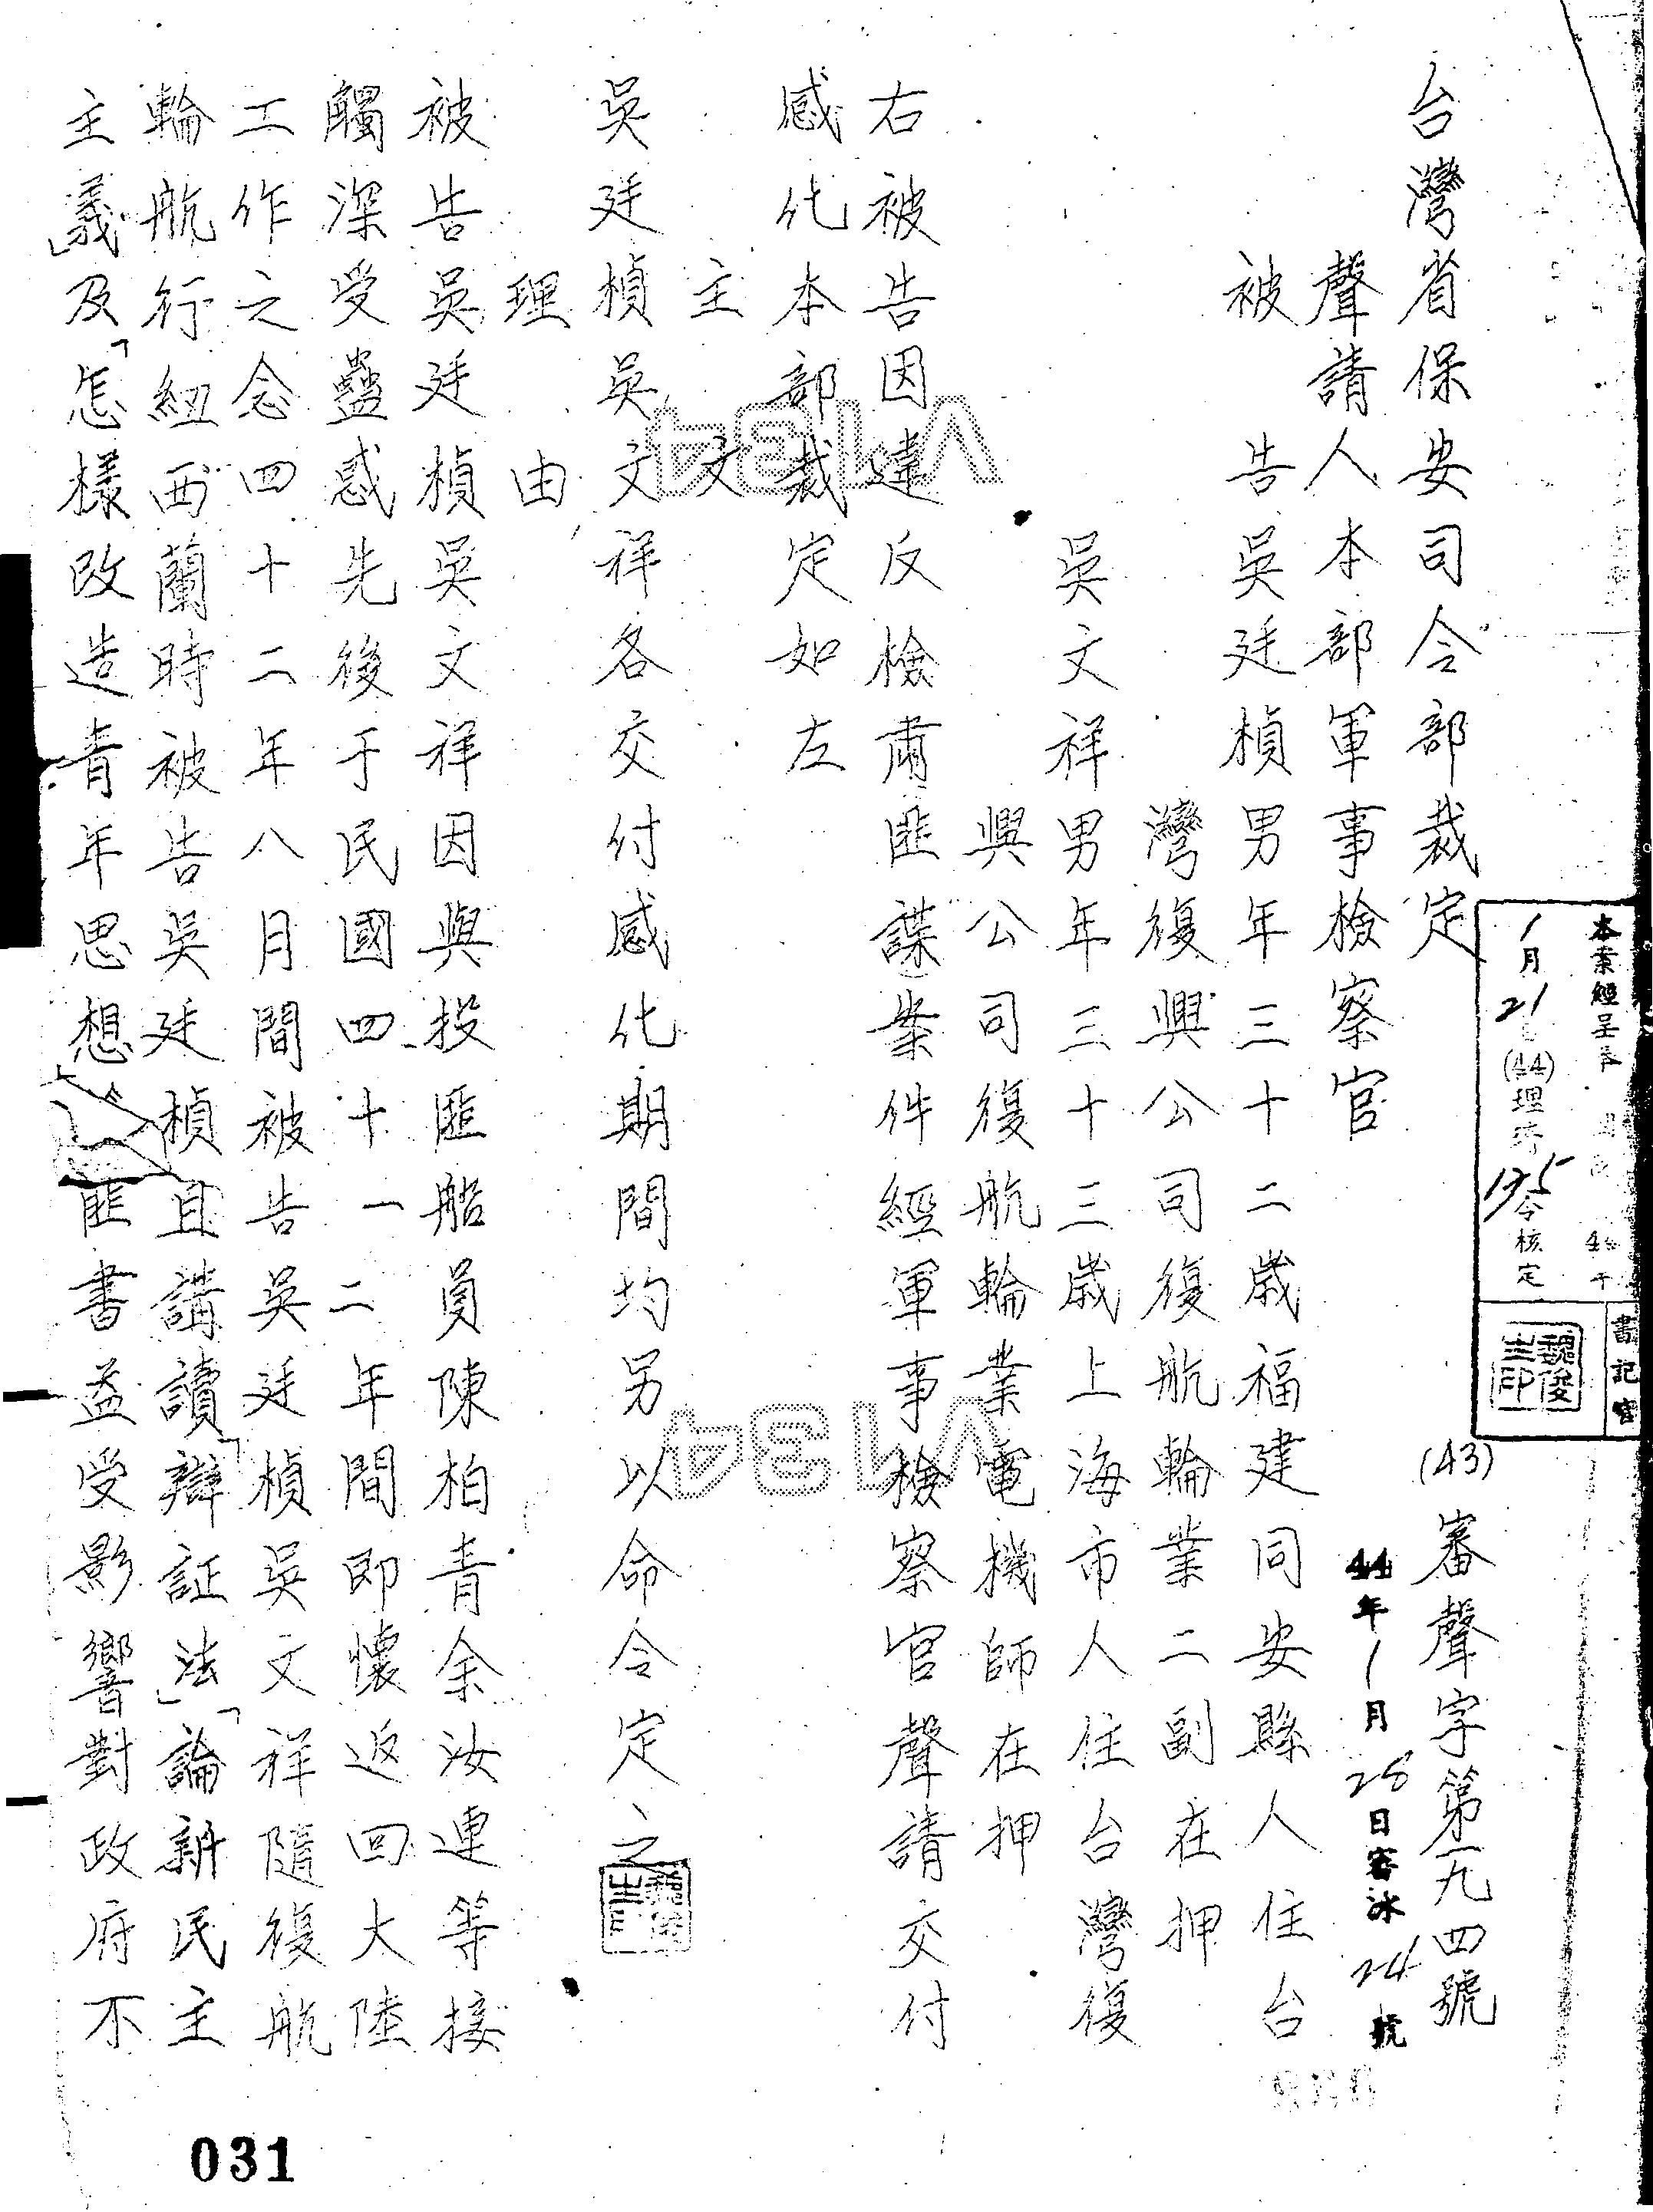 台灣省保安司令部裁定
(43)審聲字第一九四號
44年1月28日審冰24號
本案經呈奉
1月21
(44)理
195令核定
書記官
魏俊
聲請人本部軍事檢察官
被告吳廷楨男年三十二歲福建同安縣人住台
灣復興公司復航輪業二副在押
吳文祥男年三十三歲上海市人住台灣復
興公司復航輪業電機師在押
右被告因違反檢肅匪諜案件經軍事檢察官聲請交付
感化本部裁定如左
主文
吳廷楨吳文祥各交付感化期間均另以命令定之
理由
被告吳廷楨吳文祥因與投匪船員陳柏青余汝連等接
觸深受蠱惑先後于民國四十一二年間即懷返回大陸
工作之念四十二年八月間被告吳廷楨吳文祥隨復航
輪航行紐西蘭時被告吳廷楨且講讀「辯証法」「論新民主
主義」及「怎樣改造青年思想」匪書益受影響對政府不
V134
V134
031